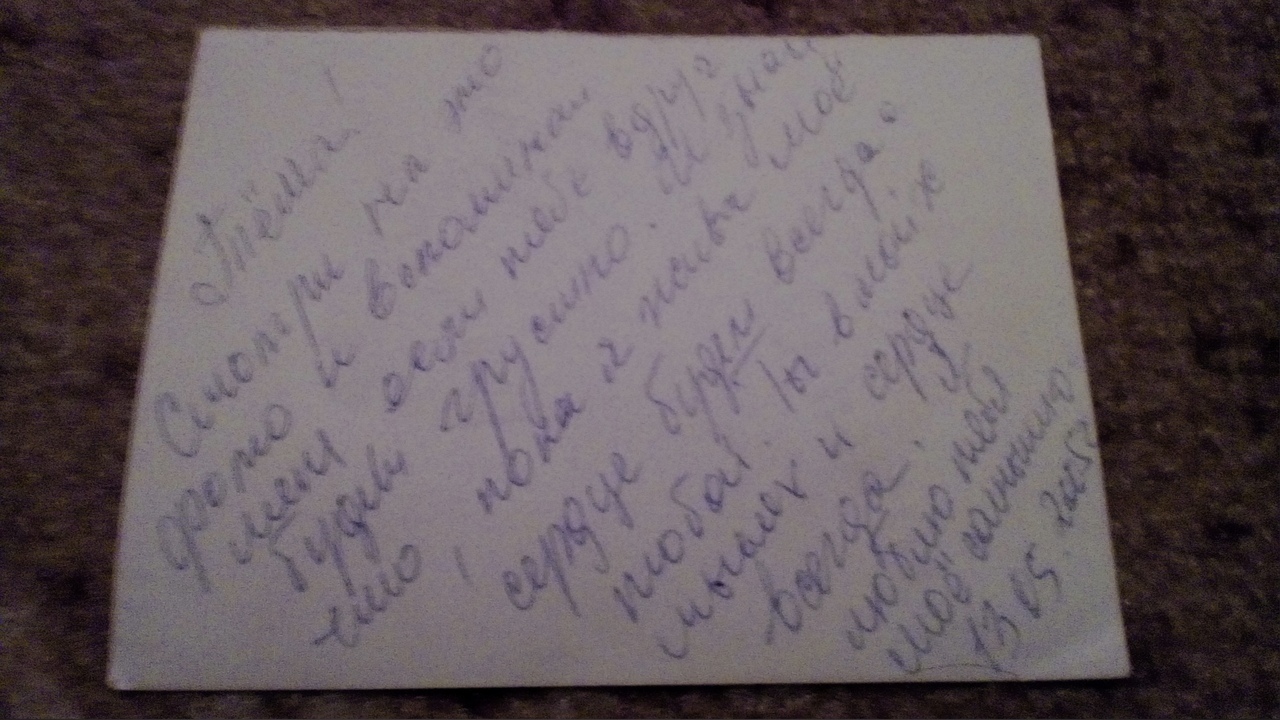 Тёма!
Смотри на это
фото и вспоминай
меня если тебе вдруг
будет грустно. И знай
что, пока я живы моё
сердце будет всегда с
тобой. Ты в моих
мыслях и сердце
всегда.
люблю тебя
моё солнышко
13.05.2005г